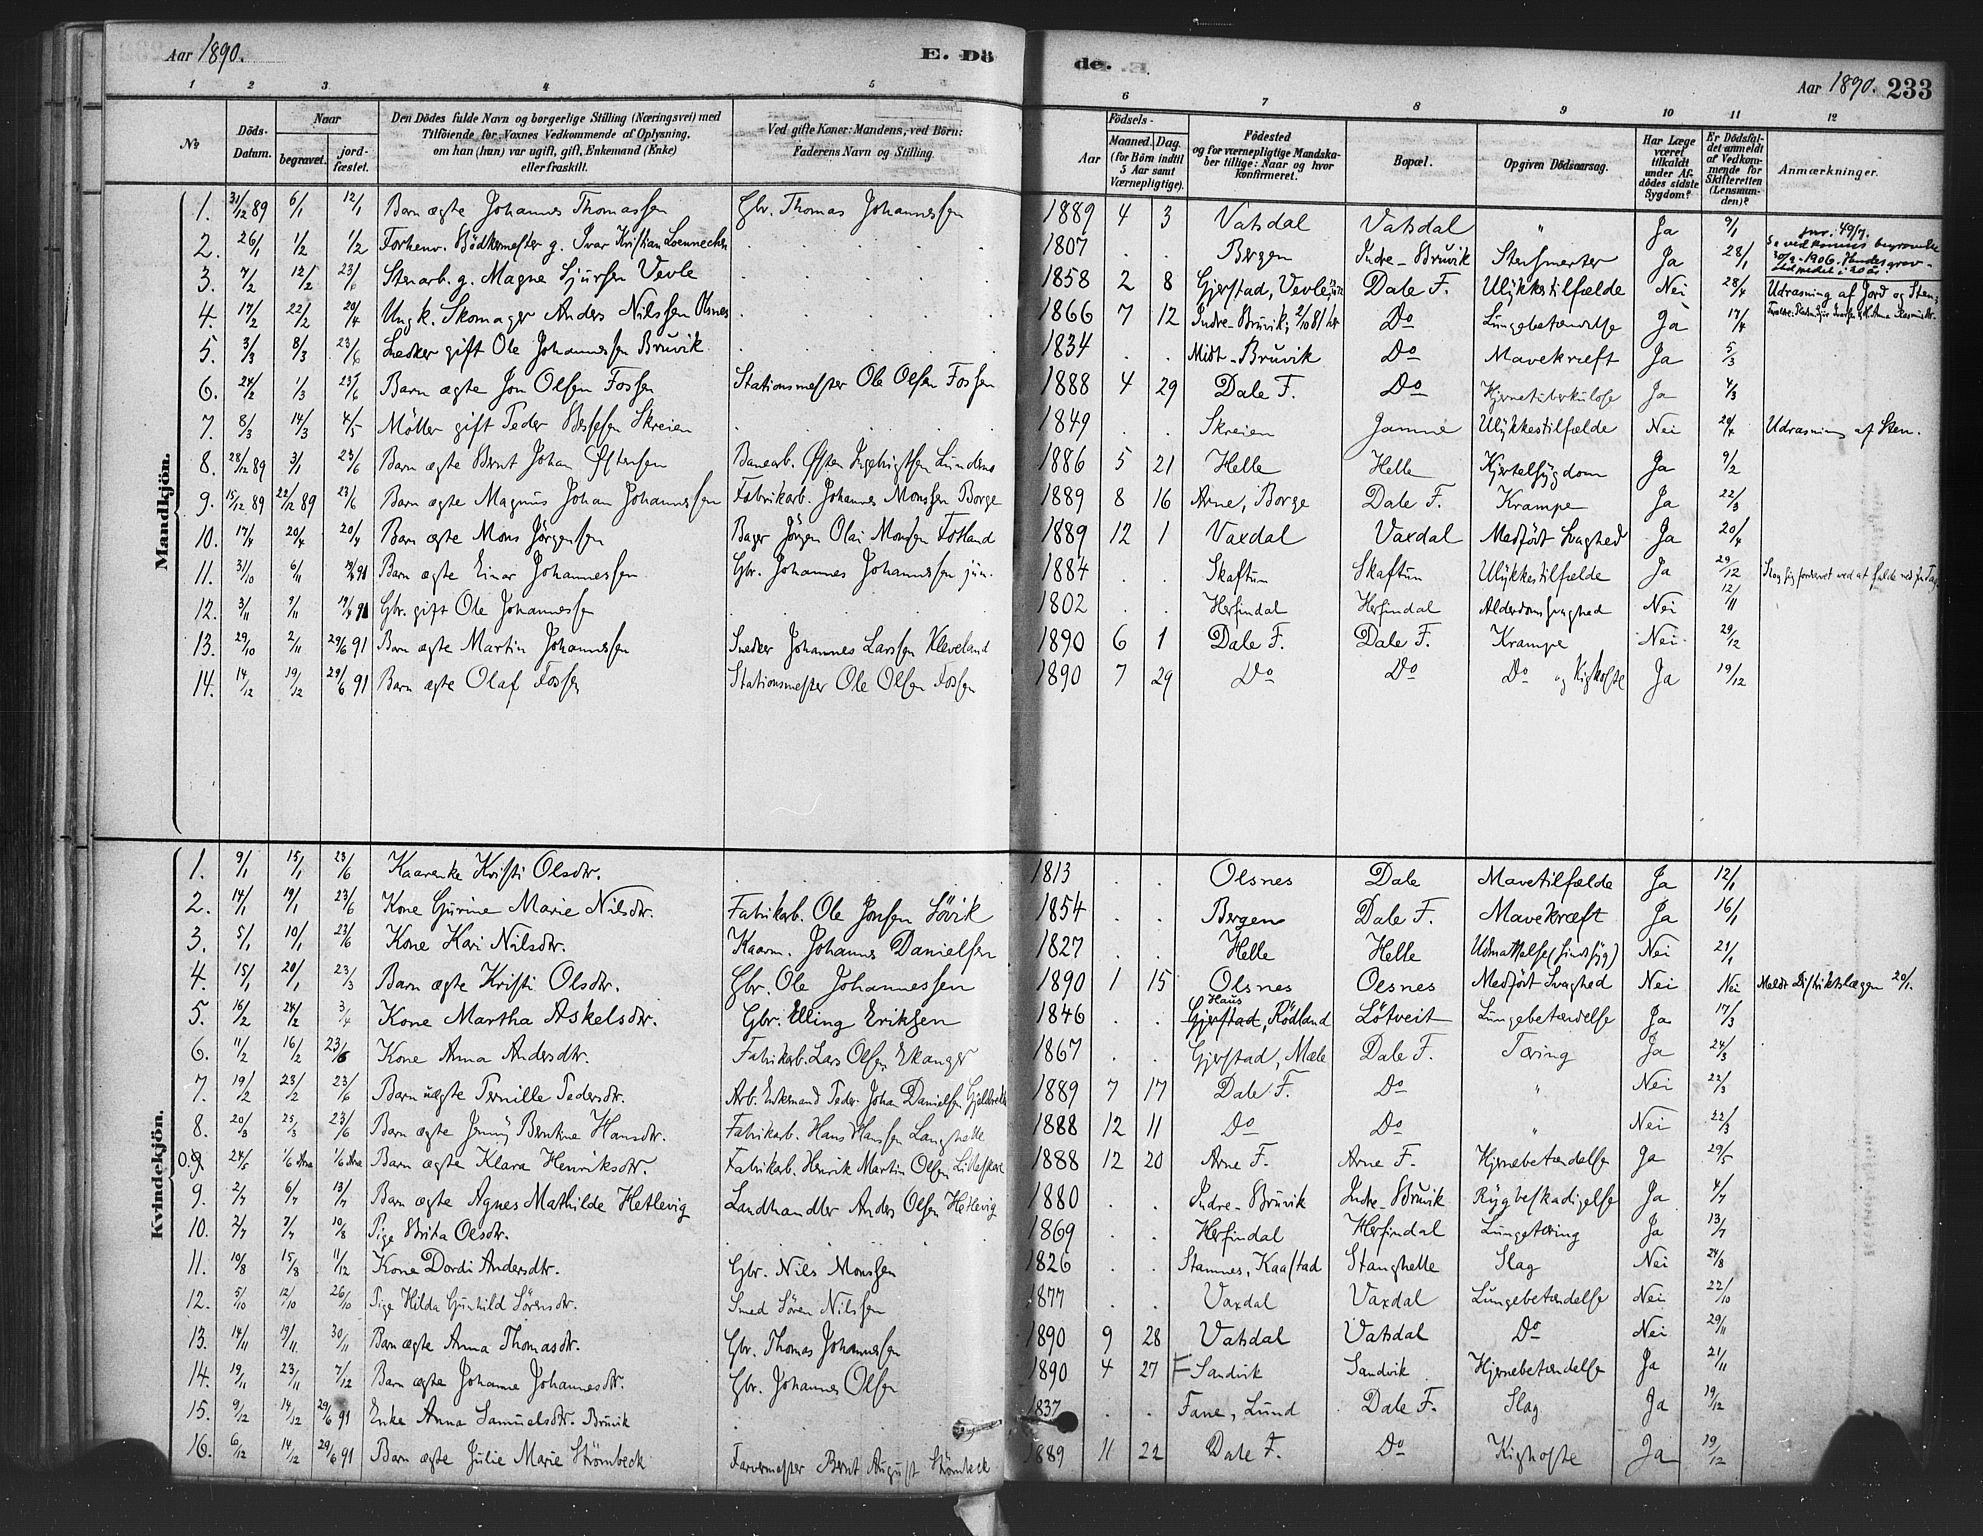 Aar 1890. E. Dö de. Aar 1890. 233
1 2 3 4 5 6 7 8 9 10 11 12
№ Döds-Datum. Naar begravet. jordfæstet. Den Dödes fulde Navn og borgerlige Stilling (Næringsvei) med Tilföiende for Voxnes Vedkommende af Oplysning, om han (hun) var ugift, gift, Enkemand (Enke) eller fraskilt. Ved gifte Koner: Mandens, ved Börn: Faderens Navn og Stilling. Födsels- Aar Maaned. Dag. (for Börn indtil 5 Aar samt Værnepligtige). Födested og for værnepligtige Mandskaber tillige: Naar og hvor konfirmeret. Bopæl. Opgiven Dödsaarsag. Har Læge været tilkaldt under Afdödes sidste Sygdom? Er Dödsfaldet anmeldt af Vedkommende for Skifteretten (Lensmanden)? Anmærkninger.
Mandkjön.
1. 31/12 89 6/1 12/1 Barn ægte Johannes Thomassen Gbr. Thomas Johannessen 1889 4 3 Vatsdal Vatsdal " Ja 9/1
2. 26/1 1/2 1/2 Forhenv. Bödkermester g. Ivar Kristian Loennechen 1807 . . Bergen Indre-Bruvik Stensmerter Ja 28/1
3. 7/2 12/2 23/6 Stenarb. g. Magne Sjursen Vevle 1858 2 8 Gjerstad, Vevle Dale F. Ulykkestilfælde Nei 28/4 Udrasning af Jord og Sten;
4. 17/2 22/2 20/4 Ungk. Skomager Anders Nilssen Olsnes 1866 7 12 Indre-Bruvik; 2/10 81 Do Lungebetændelse Ja 17/4
5. 3/3 8/3 23/6 Snedker gift Ole Johannessen Bruvik 1834 . . Midt-Bruvik Do Mavekræft Ja 5/3
6. 24/2 1/3 23/6 Barn ægte Jon Olsen Fossen Stationsmester Ole Olsen Fossen 1888 4 29 Dale F. Do Hjernetuberkulose Ja 4/3
7. 8/3 14/3 4/5 Möller gift Peder Skreien 1849 . . Skreien Jamne Ulykkestilfælde Nei 24/4 Udrasning af Sten.
8. 28/12 89 3/1 23/6 Barn ægte Bernt Johan Östensen Banearb. Östen 1886 5 21 Helle Helle Kjertelsygdom Ja 9/2
9. 15/12 89 22/12 89 23/6 Barn ægte Magnus Johan Johannessen Fabrikarb. Johannes Monssen Borge 1889 8 16 Arne, Borge Dale F. Krampe Ja 22/3
10. 17/4 20/4 20/4 Barn ægte Mons Jörgensen Bager Jörgen Olai Monsen Fotland 1889 12 1 Vaxdal Vaxdal Medfödt Svaghed Ja 20/4
11. 31/10 6/11 91 Barn ægte Einar Johannessen Gbr. Johannes Johannessen jun. 1884 . . Skaftun Skaftun Ulykkestilfælde Ja 29/12
12. 3/11 9/11 19/4 91 Gbr. gift Ole Johannessen 1802 . . Herfindal Herfindal Alderdomssvaghed Nei 12/11
13. 29/10 2/11 29/6 91 Barn ægte Martin Johannessen Snedker Johannes Larssen Kleveland 1890 6 1 Dale F. Dale F. Krampe Nei 29/12
14. 14/12 19/12 29/6 91 Barn ægte Olaf Fossen Stationsmester Ole Olsen Fossen 1890 7 29 Do Do Do og Kighoste Ja 19/12
Kvindekjön.
1. 9/1 15/1 23/6 Kaarenke Kristi Olsdtr. 1813 . . Olsnes Dale Mavetilfælde Ja 12/1
2. 14/1 19/1 23/6 Kone Gurine Marie Nilsdtr. Fabrikarb. Ole Jonssen Lövik 1854 . . Bergen Dale F. Mavekræft Ja 16/1
3. 5/1 10/1 23/6 Kone Kari Nilsdtr. Kaarm. Johannes Danielsen 1827 . . Helle Helle Udmattelse (Sindssyg) Nei 21/1
4. 15/1 20/1 23/3 Barn ægte Kristi Olsdtr. Gbr. Ole Johannessen 1890 1 15 Olsnes Olsnes Medfödt Svaghed Nei Nei Meldt Distriktslægen 20/1.
5. 16/2 24/2 3/4 Kone Martha Askelsdtr. Gbr. Elling Eriksen 1846 . . Gjerstad, Haus Rödland Lötveit Lungebetændelse Ja 17/3
6. 11/2 16/2 23/6 Kone Anna Andersdtr. Fabrikarb. Lars Olsen Ekanger 1867 . . Gjerstad, Mæle Dale F. Tæring Ja 24/3
7. 19/2 23/2 23/6 Barn uægte Pernille Pedersdtr. Arb. Enkemand Peder Johan Danielsen 1889 7 17 Dale F. Do " Nei 22/3
8. 20/3 25/3 23/6 Barn ægte Jenny Berntine Hansdtr. Fabrikarb. Hans Hanssen Langhelle 1888 12 11 Do Do " Nei 22/3
0.9. 24/5 1/6 Arne 1/6 Arne Barn ægte Klara Henriksdtr. Fabrikarb. Henrik Martin Olsen 1888 12 20 Arne F. Arne F. Hjernebetændelse Ja 29/5
9. 2/7 6/7 13/7 Barn ægte Agnes Mathilde Hetlevig Landhandler Anders Olsen Hetlevig 1880 . . Indre-Bruvik Indre-Bruvik Rygbeskadigelse Ja 4/7
10. 2/7 7/7 10/8 Pige Brita Olsdtr. 1869 . . Herfindal Herfindal Lungetæring Ja 13/7
11. 10/8 15/8 11/12 Kone Dordi Andersdtr. Gbr. Nils Monssen 1826 . . Stamnes, Kaastad Stanghelle Slag Nei 24/8
12. 5/10 12/10 26/10 Pige Hilda Gunhild Sörensdtr. Smed Sören Nilssen 1877 . . Vaxdal Vaxdal Lungebetændelse Nei 22/10
13. 14/11 19/11 30/11 Barn ægte Anna Thomasdtr. Gbr. Thomas Johannessen 1890 9 28 Vatsdal Vatsdal Do Nei 29/11
14. 19/11 23/11 7/12 Barn ægte Johanne Johannesdtr. Gbr. Johannes Olsen 1890 4 27 Sandvik Sandvik Hjernebetændelse Ja 21/11
15. 9/12 14/12 29/6 91 Enke Anna Samuelsdtr. Bruvik 1837 . . Fane, Lund Dale F. Slag Ja 19/12
16. 6/12 14/12 29/6 91 Barn ægte Julie Marie Strömbeck Farvermester Bernt August Strömbeck 1889 11 22 Dale F. Do Kighoste Ja 19/12